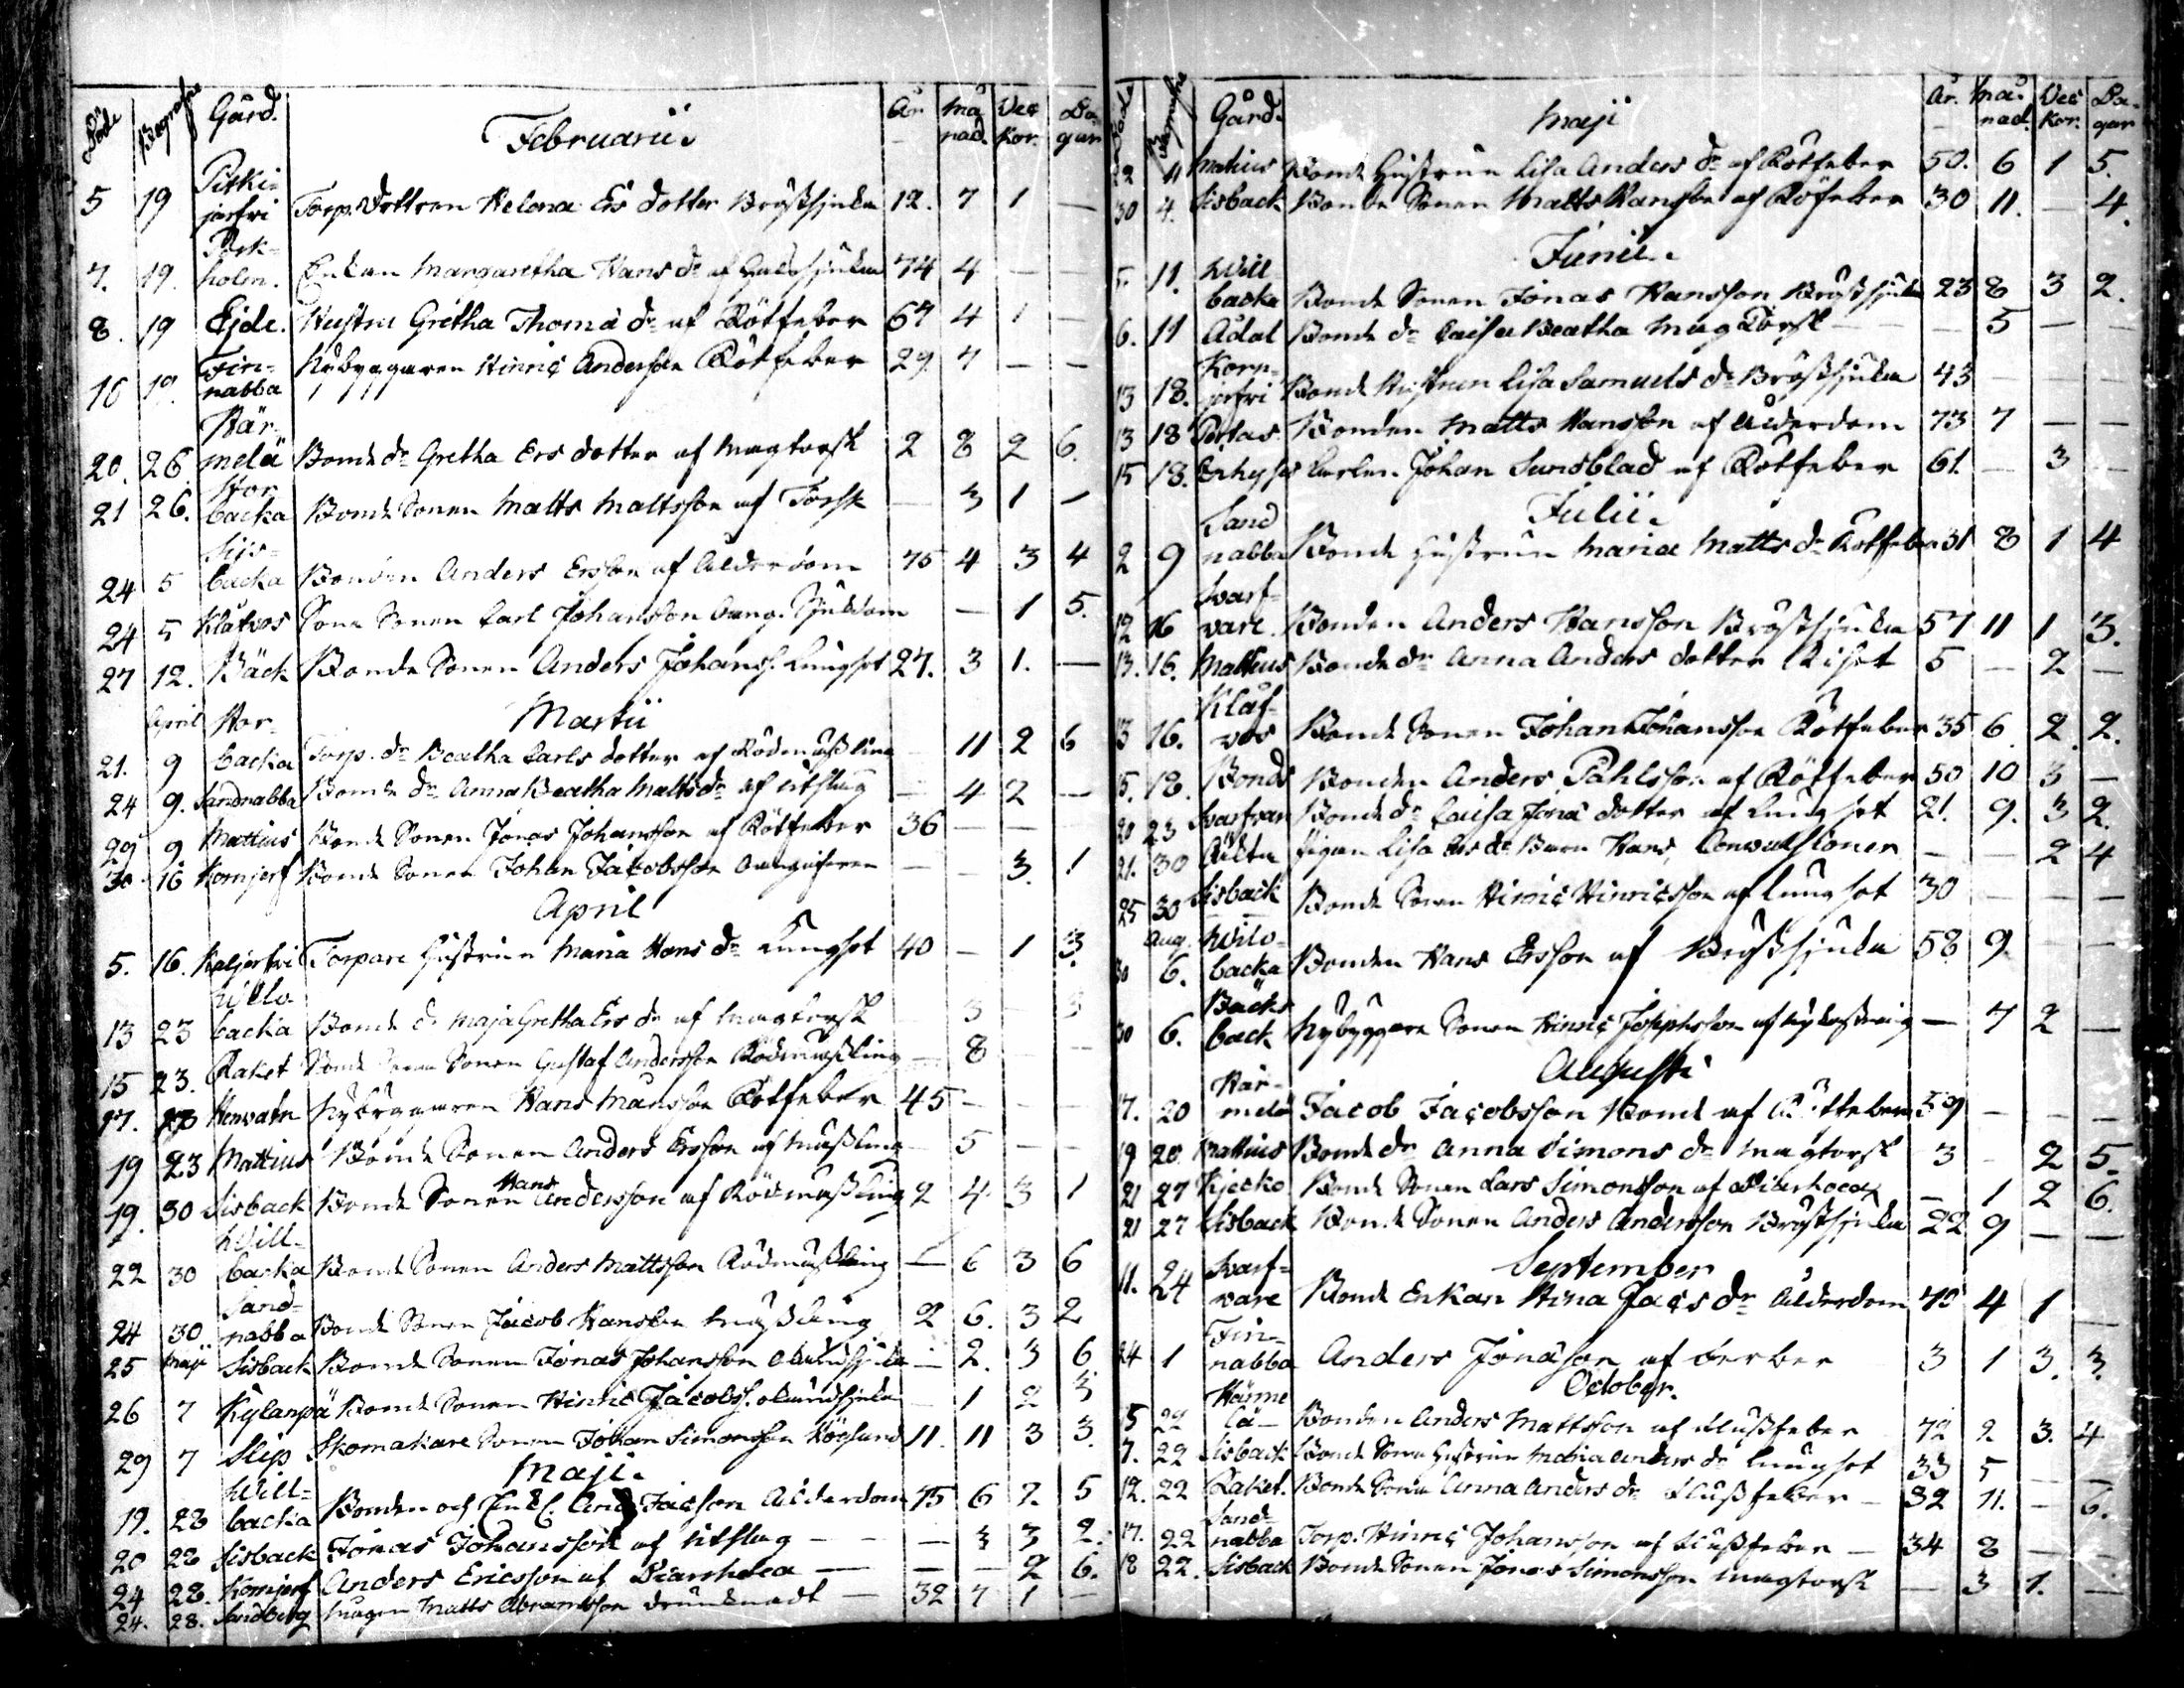 Döde Begrafne Gård. Februarii. År Må nad. Vec kor. Da gar
Pitki-
5 19 jerfvi Torp. Dottren Helena Ers dotter Bröstsjuka 12. 7 1 —
holm.
7. 19. Enkan Margaretha Hans dr af 74 4 — —
8. 19 Ejde. Hustru Gretha Thomæ dr af Rötfeber 67 4 1 —
Fin-
16 19. nabba Nybyggaren Hinric Andersson Rötfeber 29. 7 — —
Här-
20. 26 melä Bonde dr Gretha Ers dotter af Magtorsk 2 8 2 6.
Stor
21 26. backa Bonde Sonen Matts Mattsson af Torsk — 3 1 —
Sis-
24 5 backa Bonden Anders Ersson af Ålderdom 75 4 3 4
24 5 Klåfvos Sone Sonen Carl Johansson Sjukdom — 1 5.
27 12. Bäck Bonde Sonen Anders Johanss. Lungsot 27. 3 1. —
April Martii
Stor-
21. 9 backa Torp. dr Beatha Carls dotter af Rödmässling — 11 2 6
24 9. Sandnabba Bonde dr Anna Beatha Matts dr af utslag — 4 2 —
29 9 Mattius Bonde Sonen Jonas Johansson af Rötfeber 36 — —
30 16 Kornjerf Bonde Sonen Johan Jacobsson — — 3. 1
April
5. 16. Kaljerfvi Torpare Hustrun Maria Hans dr Lungsot 40 — 1 3.
13 23 backa Bonde dr Maja Gretha Ers dr af Magtorsk 3 — 3
15 23. Raket Sonen Gustaf Andersson Rödmässling — 8 —
17. 23 Nybyggaren Hans Månsson Rötfeber 45 — — —
19 23 Mattius Bonde Sonen Anders Ersson af Mässling — 5 — —
19. 30 Sisback Bonde Sonen Hans Andersson af Rödmässling 2 4 3 1
Will-
22 30 backa Bonde Sonen Anders Mattsson Rödmässling — 6 3 6
Sand-
24 30 nabba Bonde Sonen Jacob Hansson Mässling 2 6. 3 2
25 Maji Sisback Bonde Sonen Jonas Johansson — 2. 3 6
26 7 Kylänpä Bonde Sonen Hinric Jacobss. — 1 2 3
29 7 Slip Skomakare Sonen Johan Simonsson 11. 11 3 3.
Maji.
Will-
19. 28 backa Bonden och And. Jacsson Ålderdom 75 6 2. 5
20 28 Sisback Jonas Johansson af utslag — — 3 3 2.
24 28. Kornjerf Anders Ericsson af Diarrhoea — — — 2 6.
24. 28. Sandberg Matts Abramsson drunknadt — 32 7 1 —
Döde Begrafne Gård. Maji År. Må. nad. Vec kor. Da- gar
22 11 Mattius Bonde Hustrun Lisa Anders dr af Rötfeber 50. 6 1 5.
30 4. Sisback Bonde Sonen Matts Hansson af Rötfeber 30 11. — 4.
Junii.
Will
5. 11. backa Bonde Sonen Jonas Hansson Bröstsjuka 23 8 3 2.
6. 11 Ådal Bonde dr Caisa Beatha Mag Torsk — — 5 — —
Korn-
13 18. jerfvi Bonde Hustrun Lisa Samuels dr Bröstsjuka 43 — — —
13 18 Portas Bonden Matts Hansson af Ålderdom 73 7 — —
15 18. Johan Sundblad af Rötfeber 61. — 3 —
Julii.
Sand
2 9 nabba Bonde Hustrun Maria Matts dr Rötfeber 31 8 1 4
Svarf-
12 16 vare. Bonden Anders Hansson Bröstsjuka 57 11 1 3.
13. 16. Mattius Bonde dr Anna Anders dotter Riset 5 — 2 —
Klåf-
13 16. vos Bonde Sonen Johan Johansson Rötfeber 35 6. 2. 2.
15. 18. Bonds Bonden Anders Påhlsson af Rötfeber 50 10 3 —
20 23 Svarfvar Bonde dr Caisa Jonæ dotter af Lungsot 21. 9. 3 2.
21. 30 Pigan Lisa Ers dr Barn Hans, Convulsioner — — 2 4
25 30 Sisback Bonde Sonen Hinric Hinricsson af Lungsot 30 — — —
Aug. Will-
30 6. backa Bonden Hans Ersson af Bröstsjuka 58 9. —
Bäcks
30 6. back Nybyggare Sonen Hinric Josephsson af — 7 2 —
Augusti
Här-
17. 20 melä Jacob Jacobsson Bonde af Rötfeber 59 — — —
19 20 Mattius Bonde dr Anna Simons dr Magtorsk 3 — 2 5.
21 27 Kjecko Bonde Sonen Lars Simonsson af Diarhoea — 1 2 6.
21 27 Sisback Bonde Sonen Anders Andersson Bröstsjuka 22 9 — —
September
Svarf-
11. 24 vare Bonde Enkan Stina Jacs dr Ålderdom 75 4 1 —
Fin-
24 1 nabba Anders Jonasson af Feber 3 1 3. 3.
October.
Härme
5 22 lä — Bonden Anders Mattsson af Flussfeber 72 2 3. 4
7. 22 Sisback Bonde Sone Hustrun Maria Anders dr Lungsot 33 5 — —
12. 22 Raket. Bonde Anna Anders dr Flussfeber — 32 11. — 6.
Sand-
17. 22 nabba Torp. Hinric Johansson af Flussfeber — 34 8 —
18 22. Sisback Bonde Sonen Jonas Simonsson Magtorsk — 3 1. —